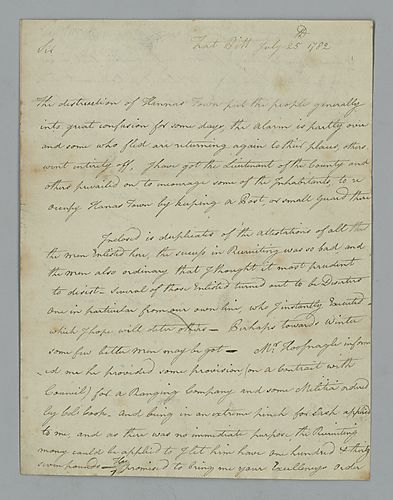 Sir
Fort Pitt July 25th 1782
The distruction of Hannas Town put the people generally
into great confusion for some days, the alarm is partly over
and some who fled are returning again to their places, others
went intirely off. I have got the Lieutenant of the County and
others prevailed on to encourage some of the Inhabitants, to re
occupy Hanas Town by keeping a Post or small Guard there
Inclosed is duplicates of the attestations of all
the men Enlisted here, the success in Recruiting was so bad and
the men also ordinary that I thought it most prudent
to desist - Several of those Enlisted turned out to be Deserters
one in particular from our own line, who I instantly Executed -
which I hope will deter others - Perhaps towards Winter
some few better men may be got - Mr Hoofnagle inform
ed me he provided some provision (on a Contract with
Council) for a Ranging Company and some Militia ordered
by Col. Cook. and being in an extreme pinch for Cash applied
to me, and as there was no immediate purpose, the Recruiting
money could be applied to I let him have one hundred & thirty
seven pounds - He promised to bring me your Excellencys order